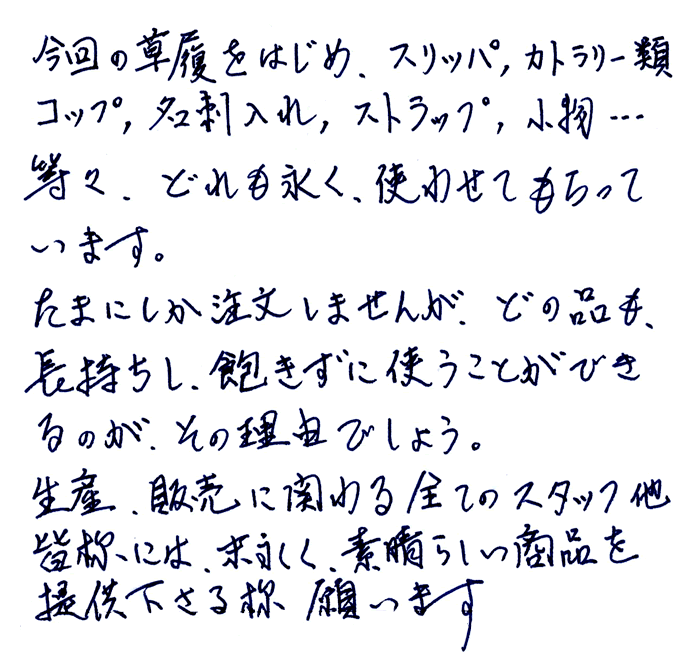 今回の草履をはじめ、スリッパ, カトラリー類
コップ, 名刺入れ, ストラップ, 小物…
等々、どれも永く、使わせてもらって
います。
たまにしか注文しませんが、どの品も、
長持ちし、飽きずに使うことができ
るのが、その理由でしょう。
生産、販売に関わる全てのスタッフ他
皆様には、末永く、素晴らしい商品を
提供下さる様 願います